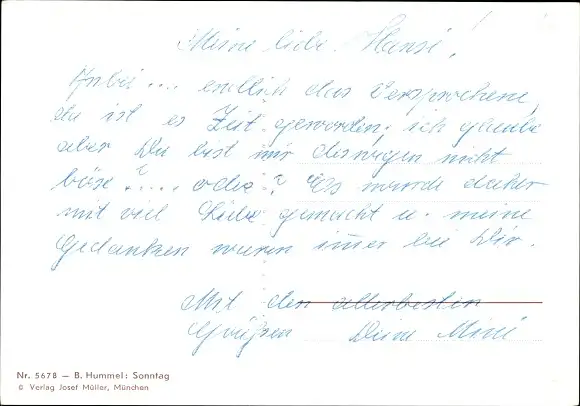 Meine liebe Hansi!
Anbei.... endlich das Versprochene,
da ist es Zeit geworden; ich glaube
aber Du bist mir deswegen nicht
böse?.... oder? Es wurde daher
mit viel Liebe gemacht u. meine
Gedanken waren imer bei Dir.
Mit den allerbesten
Grüßen Deine Mini
Nr. 5678 — B. Hummel: Sonntag
© Verlag Josef Müller, München